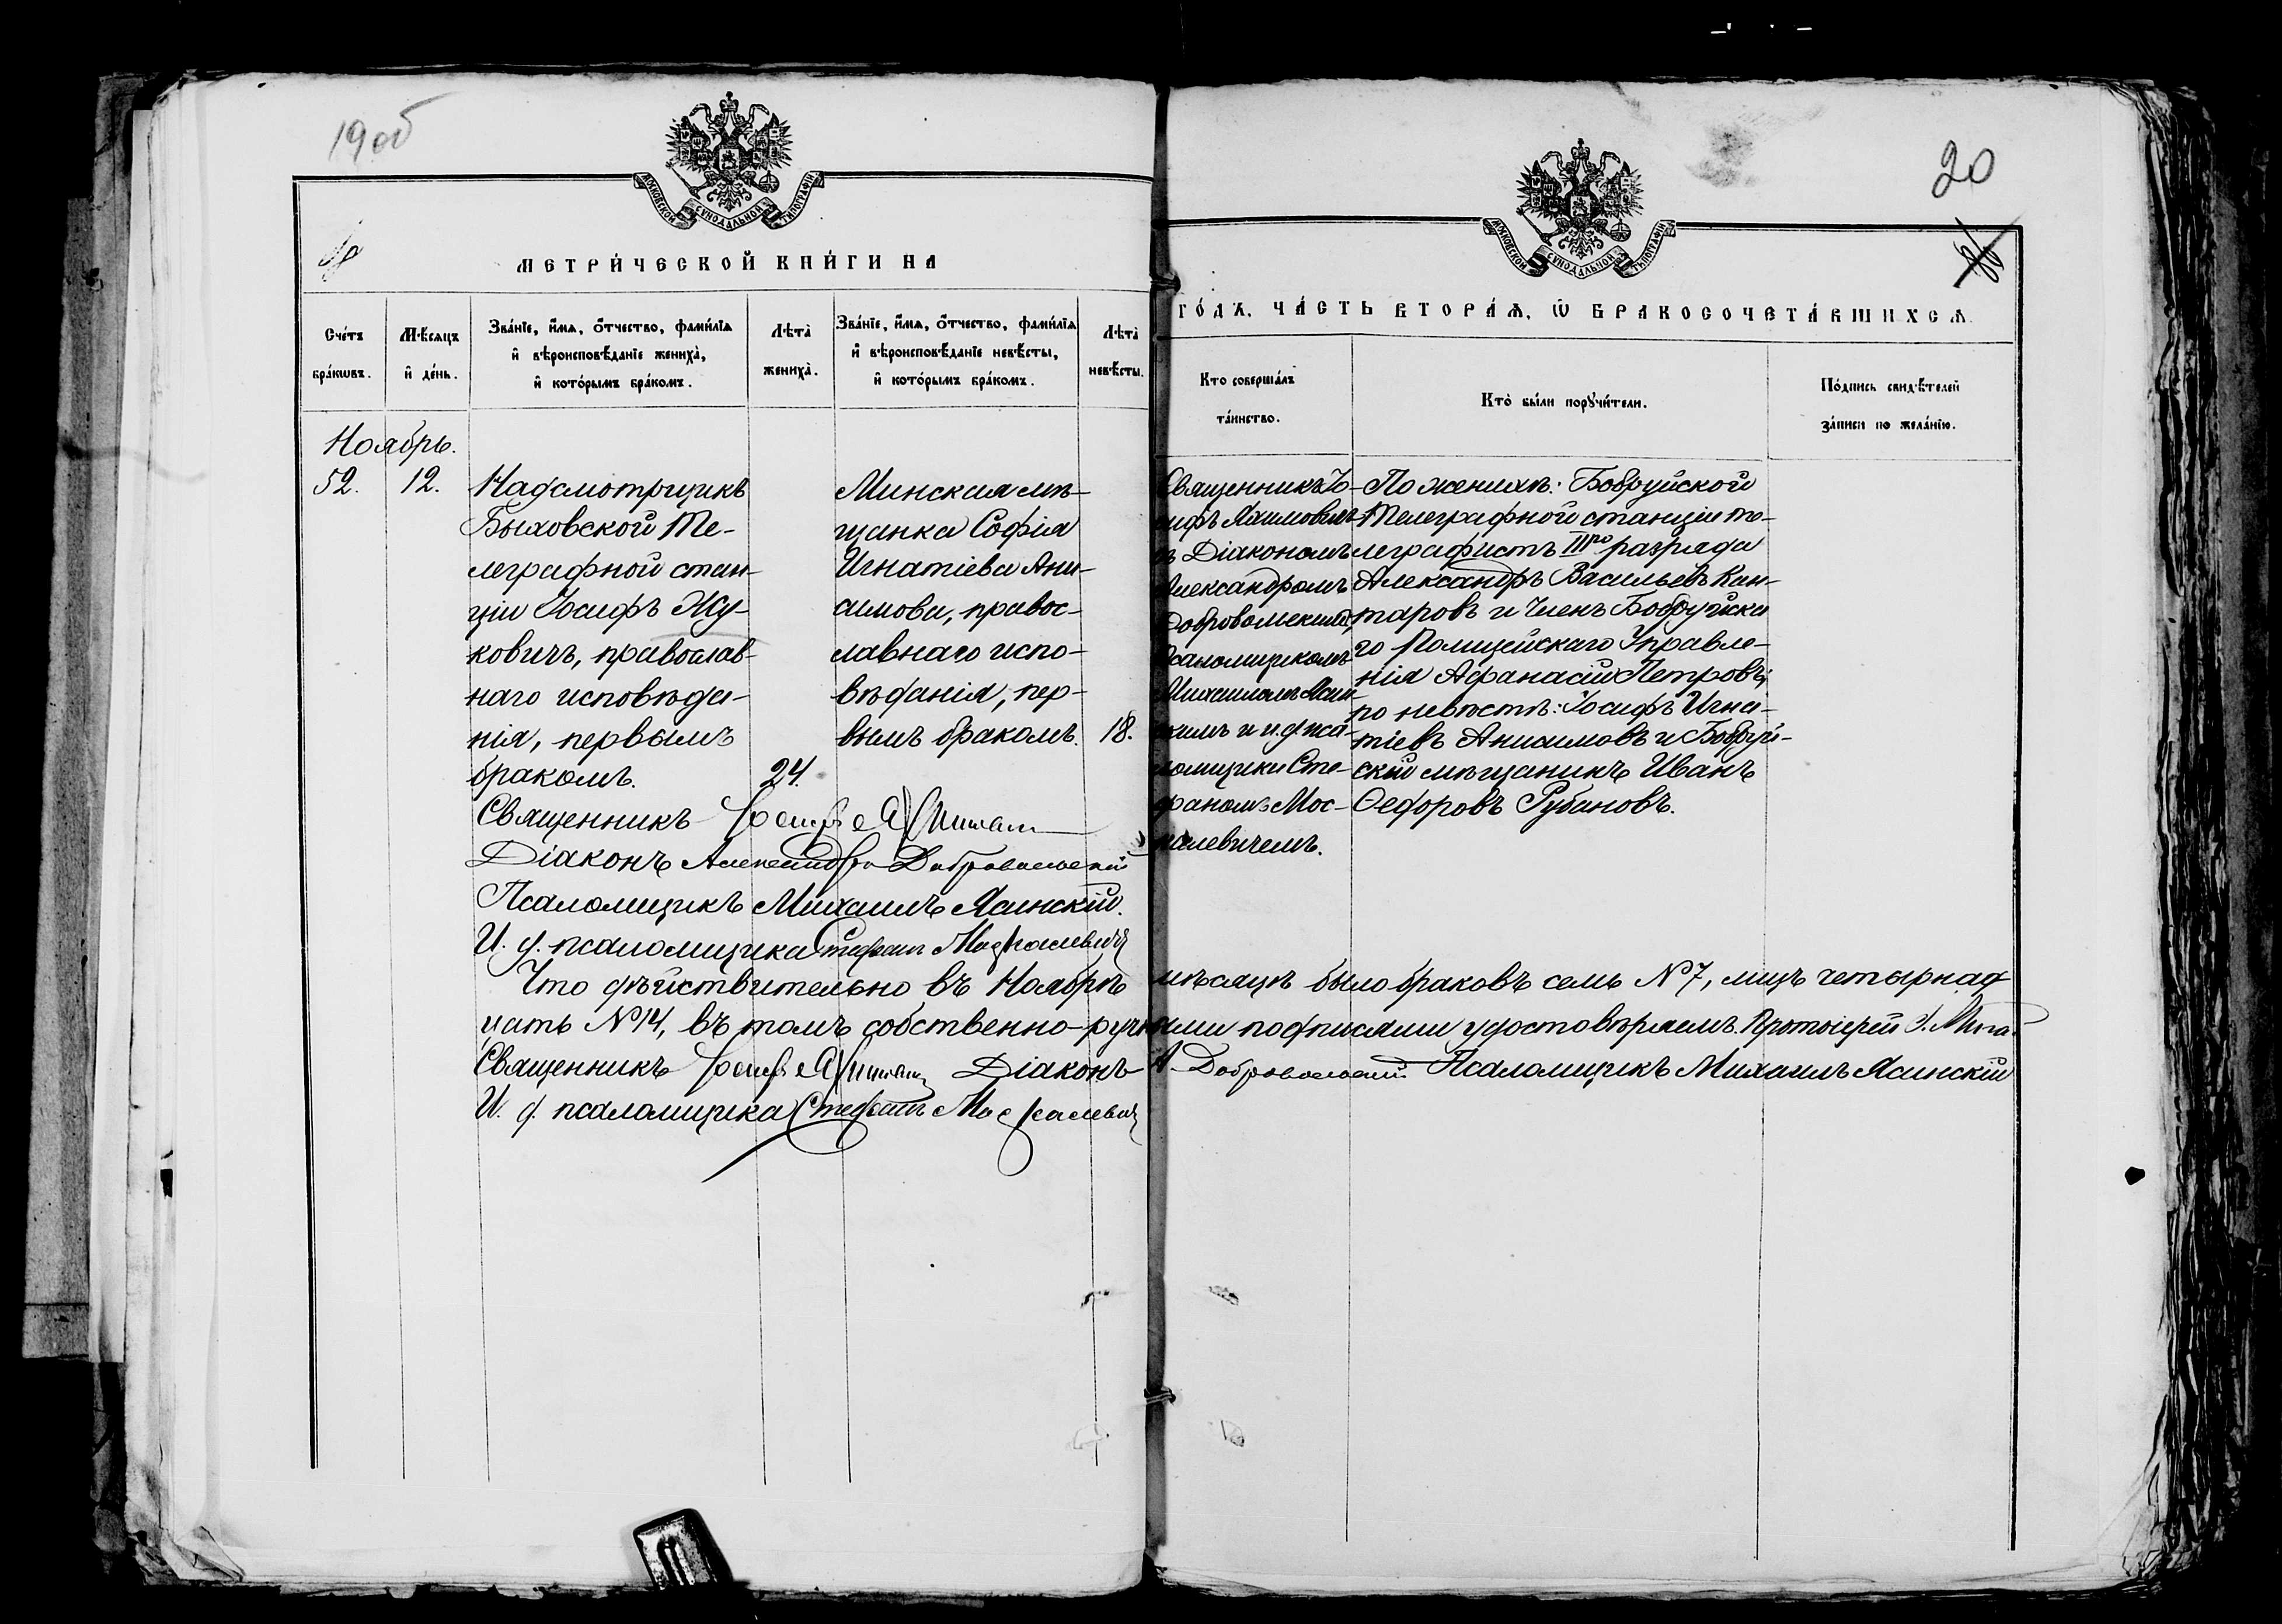 19 об
20
МОСКОВСКОЙ СѴНОДАЛЬНОЙ ТИПОГРАФІИ
МОСКОВСКОЙ СѴНОДАЛЬНОЙ ТИПОГРАФІИ
МЕТРИ́ЧЕСКОЙ КНИ́ГИ НА
ГО́ДЪ, ЧА́СТЬ ВТОРА́Ѧ, Ѡ҆ БРАКОСОЧЕТА́ВШИХСѦ.
Сче́тъ бра́кѡвъ.
Мѣ́сѧцъ и҆ де́нь.
Зва́нїе, и҆́мѧ, ѻ҆́тчество, фами́лїѧ
и҆ вѣроисповѣ́данїе жениха̀,
и҆ кото́рымъ бра́комъ.
Лѣта̀ жениха̀.
Зва́нїе, и҆́мѧ, ѻ҆́тчество, фами́лїѧ
и҆ вѣроисповѣ́данїе невѣ́сты,
и҆ кото́рымъ бра́комъ.
Лѣта̀ невѣ́сты.
Кто соверша́лъ
та́инство.
Кто̀ бы́ли порꙋчи́тели.
По́дпись свидѣ́телей
за́писи по жела́нїю.
Ноябрь.
52.
12.
Надсмотрщикъ
Быховской Те-
леграфной стан-
ціи Іосифъ Жу-
ковичъ, православ-
наго исповѣда-
нія, первымъ
бракомъ.
24.
Минская мѣ-
щанка Софія
Игнатіева Ани-
симова, правос-
лавнаго испо-
вѣданія, пер-
вымъ бракомъ.
18.
Священникъ Іо-
сифъ Яхимовичъ
съ Діакономъ
Александромъ
Добровольскимъ,
Псаломщикомъ
Михаиломъ Ясин-
скимъ и и. д. пса-
ломщика Сте-
фаномъ Мос-
калевичемъ.
По женихѣ: Бобруйской
Телеграфной станціи те-
леграфистъ IIIго разряда
Александръ Васильевъ Кан-
таровъ и Членъ Бобруйска
го Полицейскаго Управле-
нія Афанасій Петровъ;
по невѣстѣ: Іосифъ Игна-
тіевъ Анисимовъ и Бобруй-
скій мѣщанинъ Иванъ
Ѳедоровъ Рубановъ.
Священникъ Іосифъ Яхимович
Діаконъ Александръ Добровольскій
Псаломщикъ Михаилъ Ясинскій.
И. д. псаломщика Стефанъ Москалевичъ
Что дѣйствительно въ Ноябрѣ мѣсяцѣ было браковъ семь №7, лицъ четырнад
цать №14, въ томъ собственно-ручными подписями удостовѣряемъ. Протоіерей
Священникъ Іосифъ Яхимович Діаконъ А. Добровольскій Псаломщикъ Михаилъ Ясинскій
И. д. псаломщика Стефанъ Москалевичъ